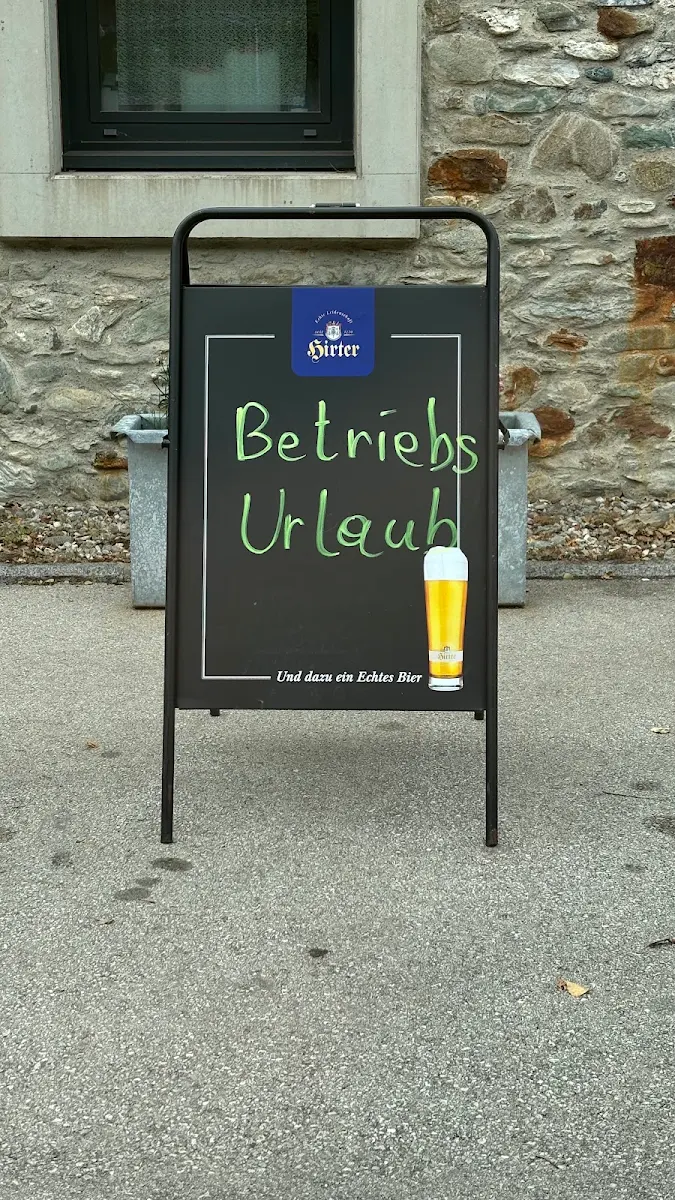 Hirter
Betriebs
Urlaub
Hirter
Und dazu ein Echtes Bier